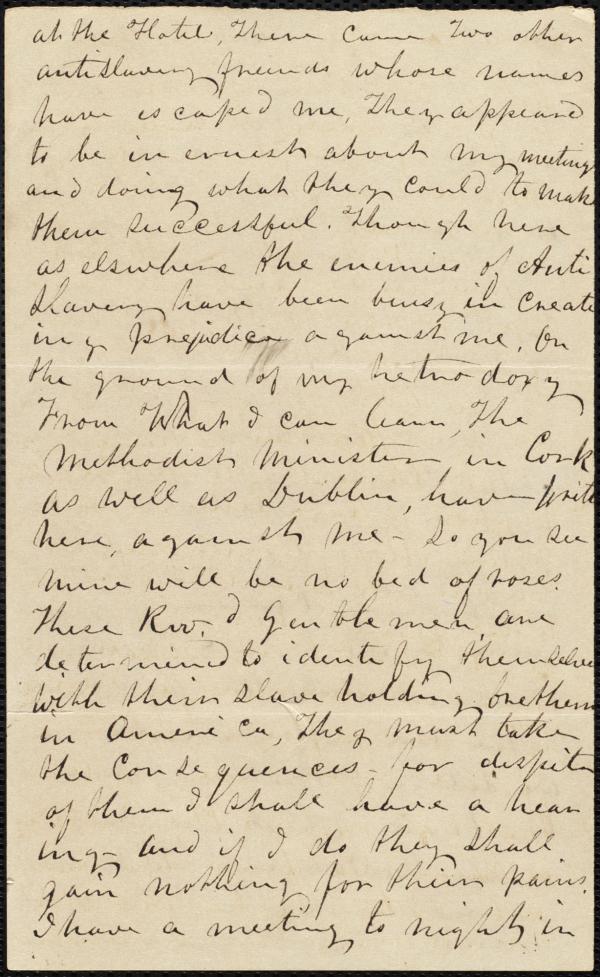 at the Hotel, There came Two other
antislavery friends whose names
have escaped me, They appeared
to be in ernest about my meetings
and doing what they could to make
them successful. Though here
as elswhere the enemies of Anti
Slavery have been busy in Creat
ing prejudice against me, On
the ground of my hetrodoxy
From What I can learn, The
Methodist Ministers in Cork
as well as Dublin, have write
here, against me - So you see
mine will be no bed of roses.
These Rev.d Gentlemen are
determined to identify themselves
with their slave holding brethern
in America, They must take
the Consequences - for dispite
of them I shall have a hear
ing - and if I do they shall
gain nothing for their pains.
I have a meeting to night, in